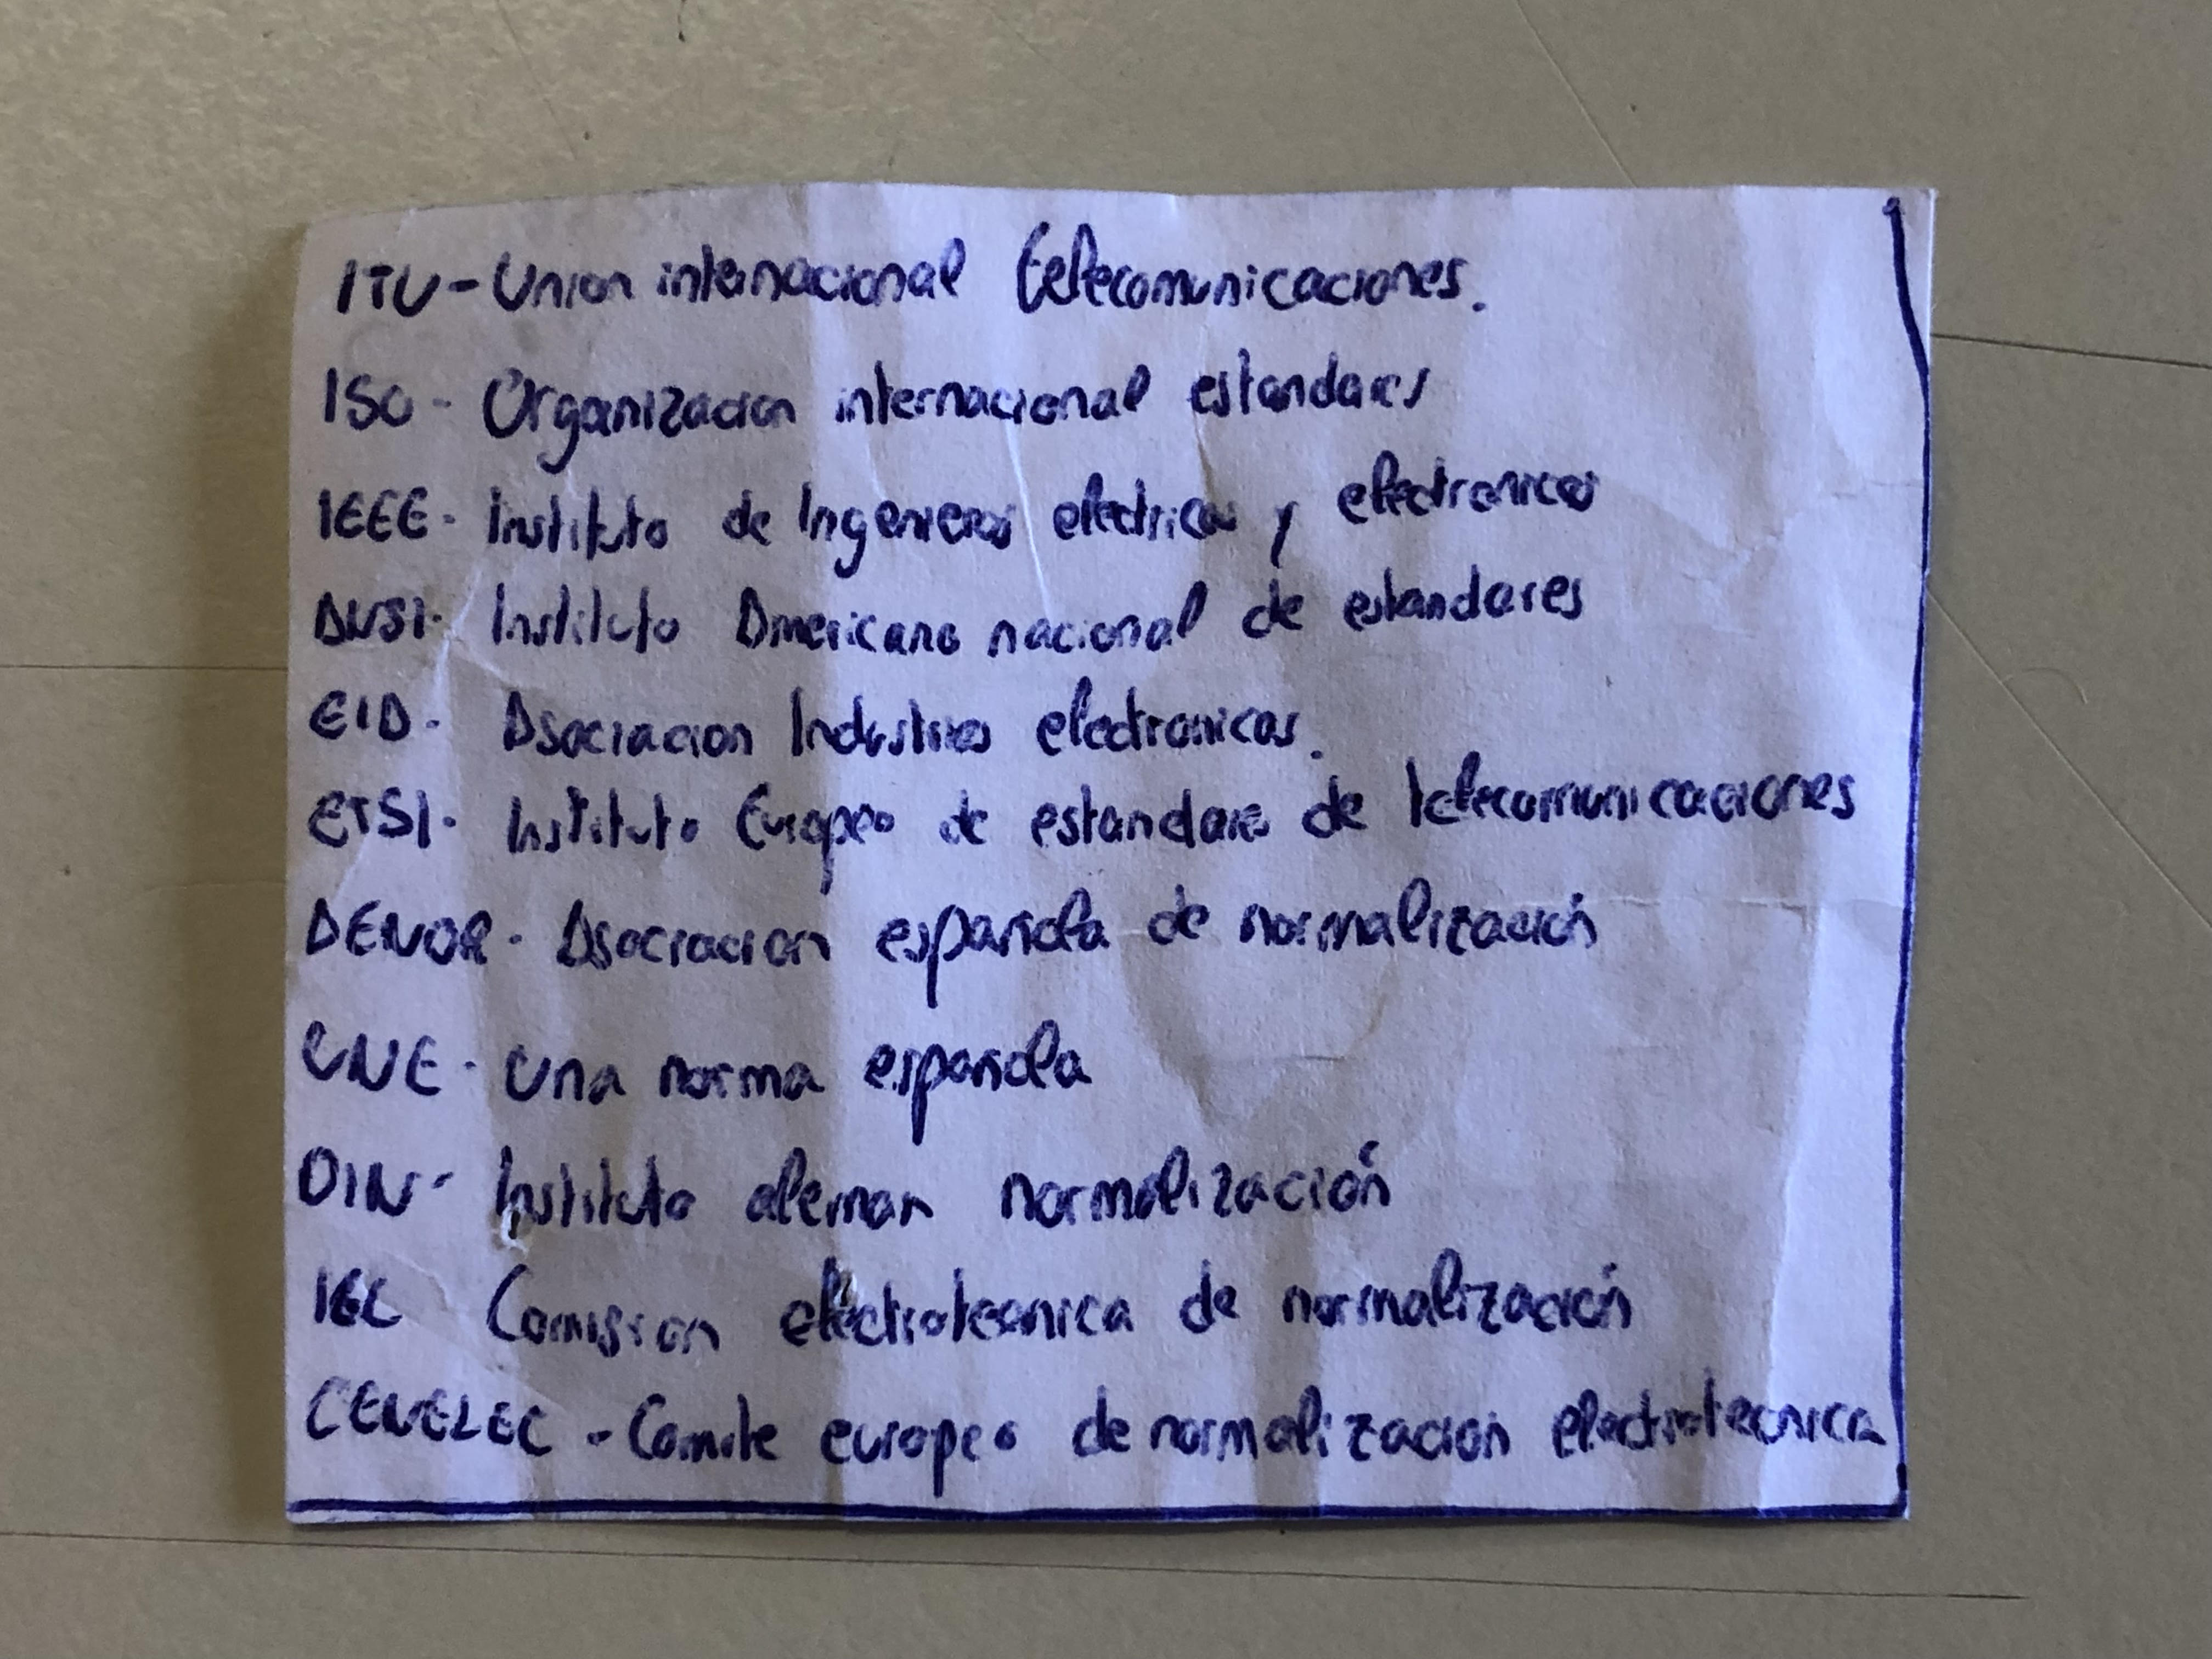 ITU - Union internacional telecomunicaciones.
ISO - Organizacion internacional estandares
IEEE - Instituto de Ingenieros electricos y electronicos
ANSI - Instituto Americano nacional de estandares
EIA - Asociacion Industrias electronicas.
ETSI - Instituto Europeo de estandares de telecomunicaciones
AENOR - Asociacion española de normalización
UNE - Una norma española
DIN - Instituto aleman normalización
IEC Comision electrotecnica de normalización
CENELEC - Comite europeo de normalizacion electrotecnica